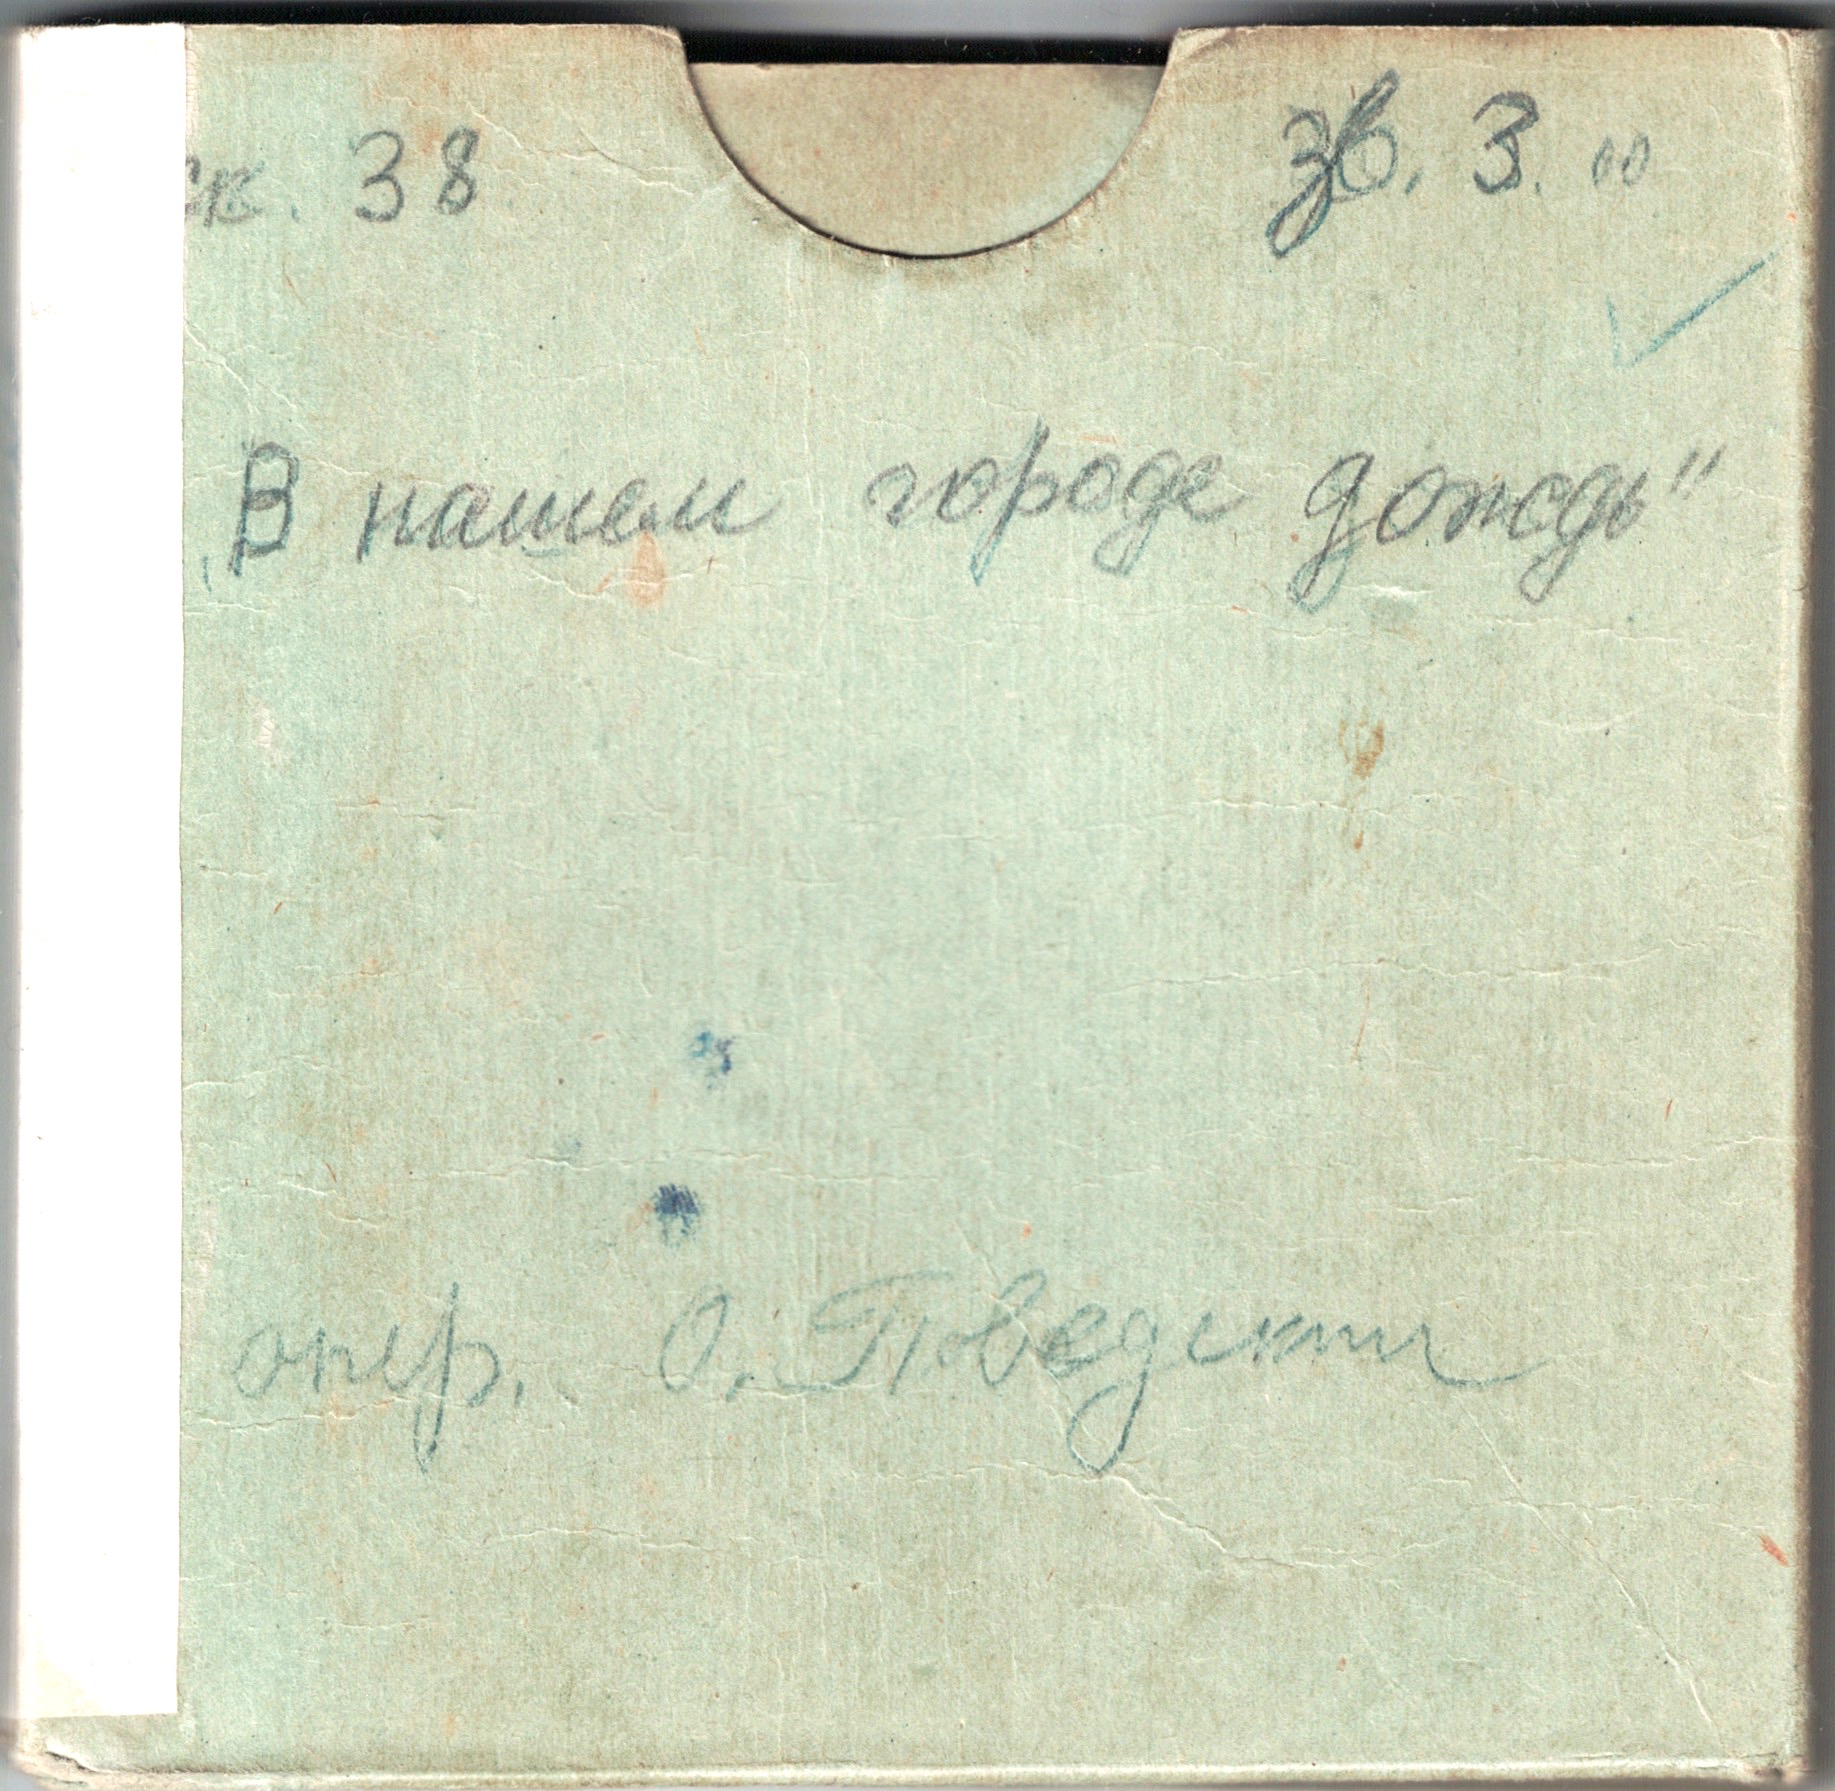 ск. 38 зв. 3. 00
„В нашем городе дождь"
опер. О. Поведским